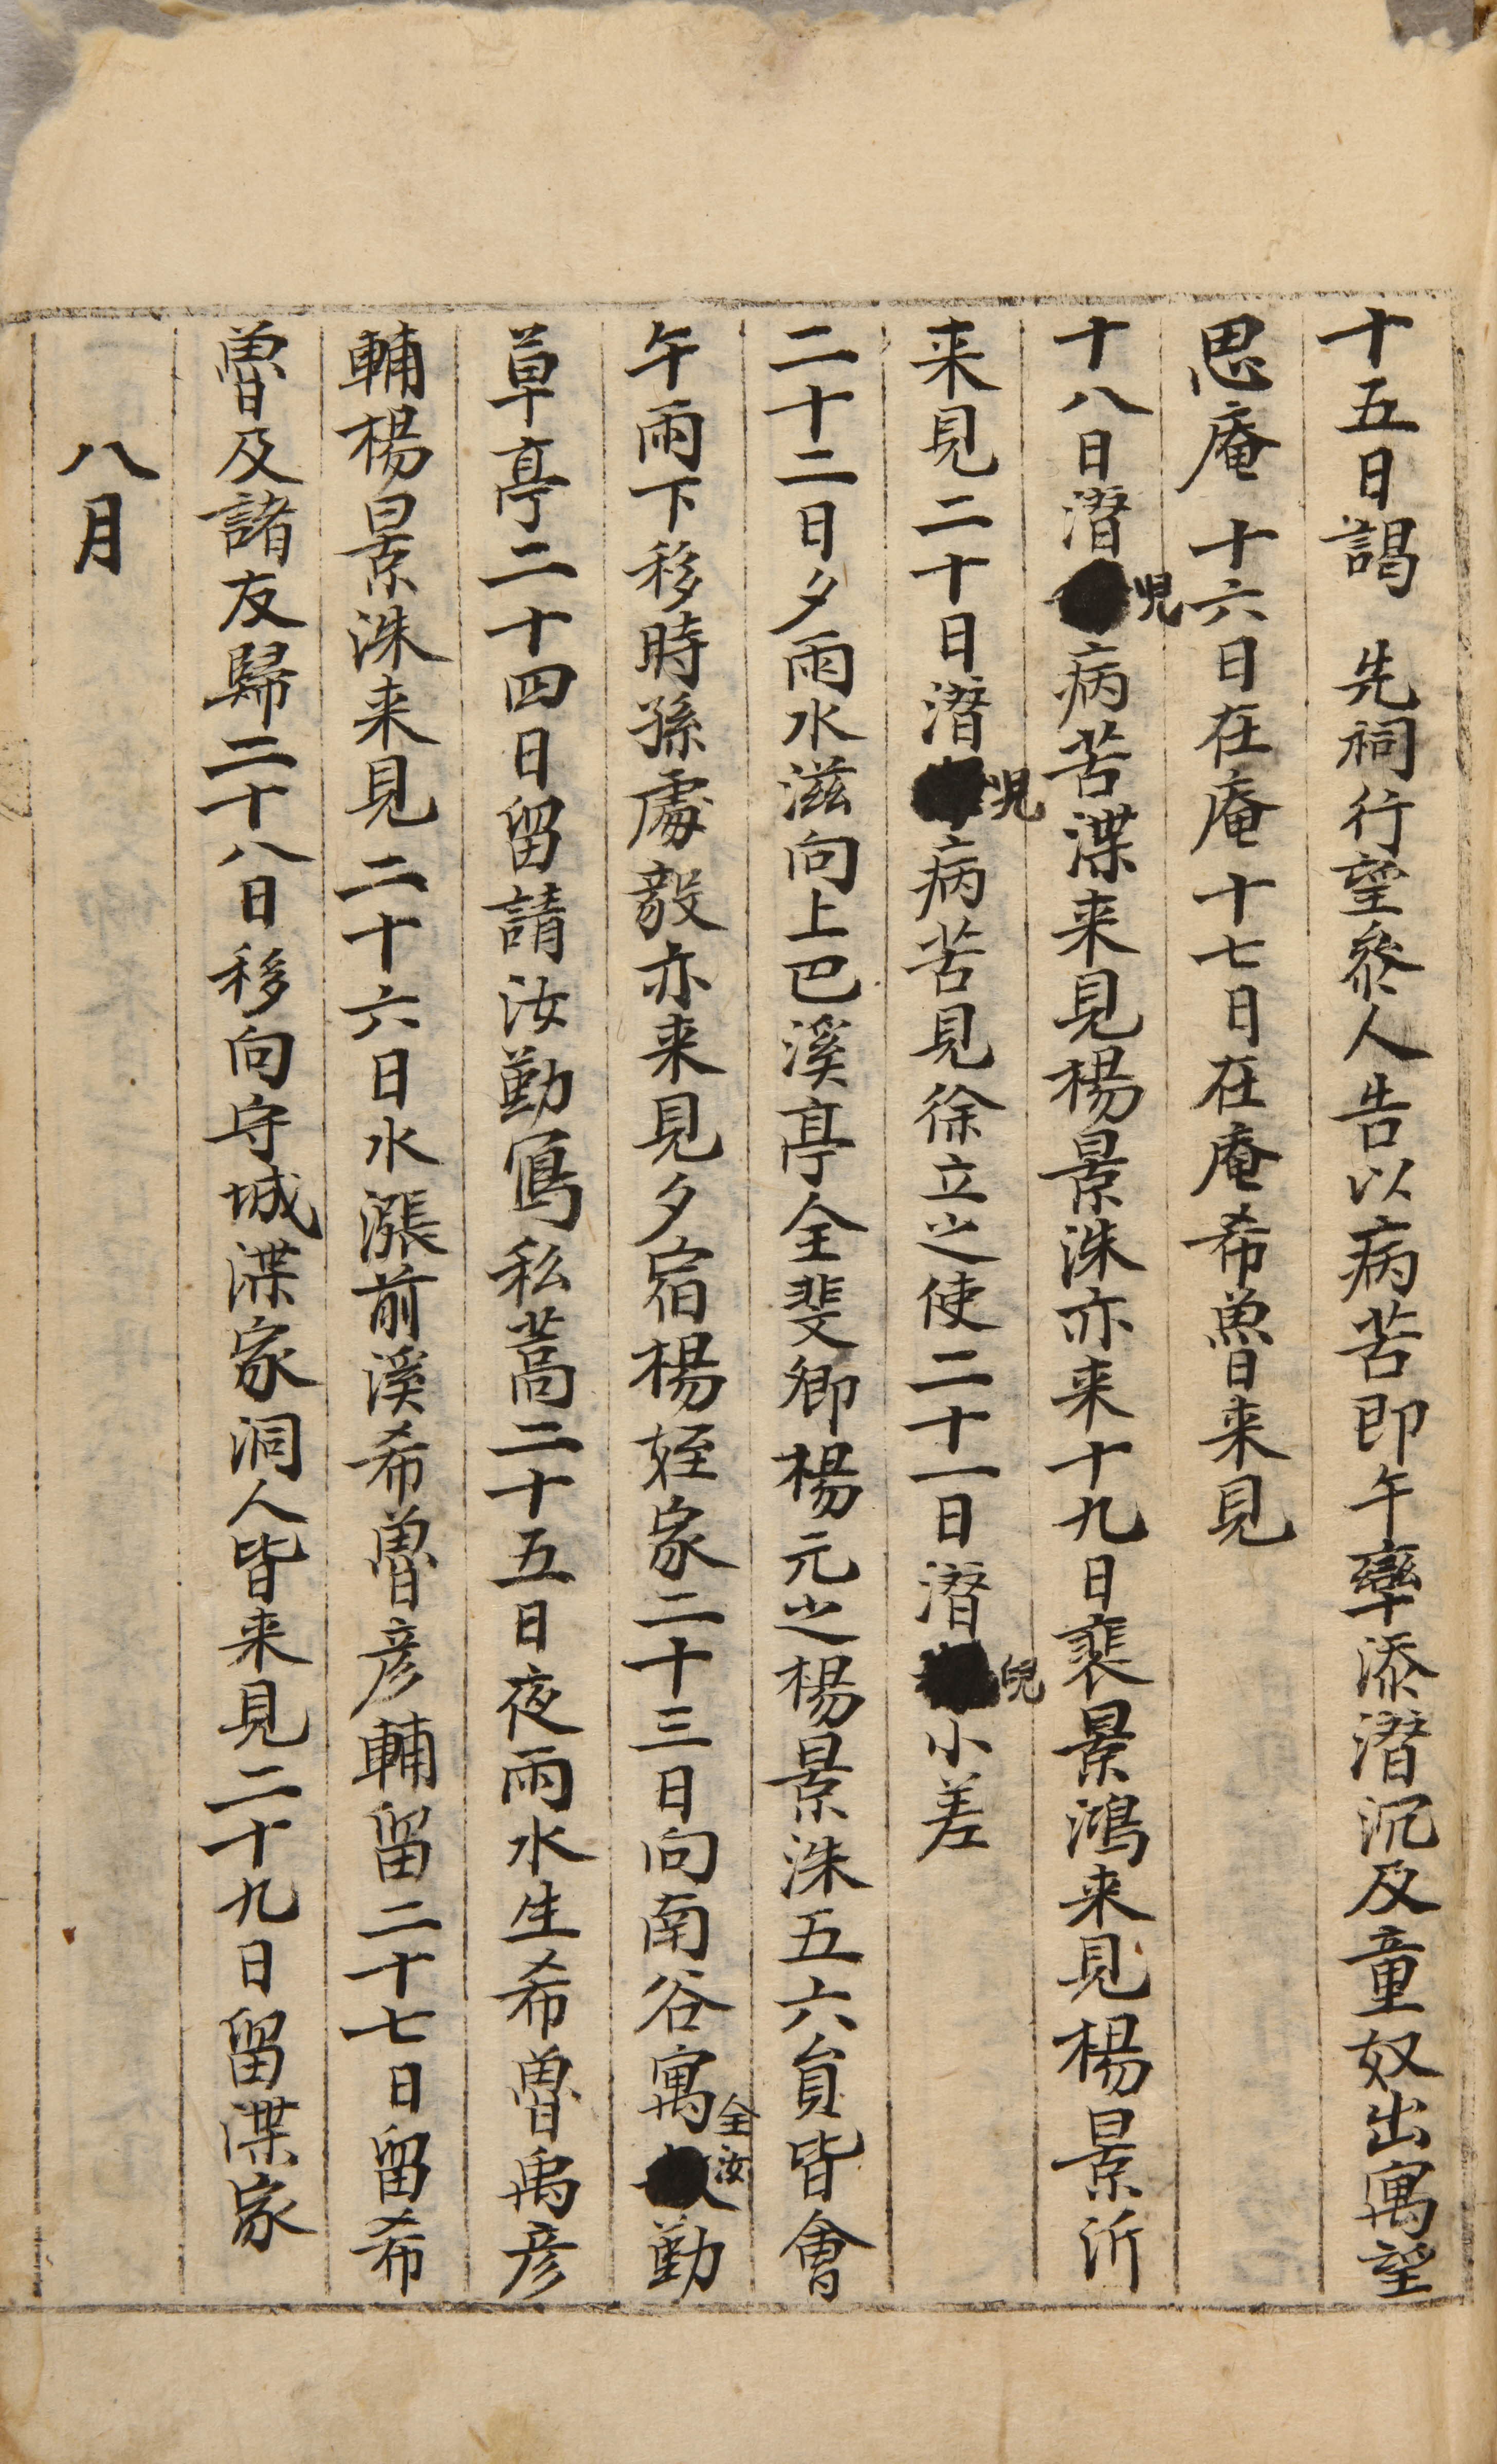 十五日謁　先祠行望叅人告以病苦即午率添潛沉及童奴出寓望
思庵　十六日在庵十七日在庵希魯来見
十八日潛兒病苦渫来見楊景洙亦来十九日裵景鴻来見楊景沂
来見二十日潛兒病苦見徐立之使二十一日潛兒小差
二十二日夕雨水滋向上巴溪亭全斐卿楊元之楊景洙五六員皆會
午雨下移時孫處毅亦来見夕宿楊姪家二十三日向南谷寓全汝勤
草亭二十四日留請汝勤寫私藁二十五日夜雨水生希魯禹彦
輔楊景洙来見二十六日水漲前溪希魯彦輔留二十七日留希
魯及諸友歸二十八日移向守城渫家洞人皆来見二十九日留渫家
八月